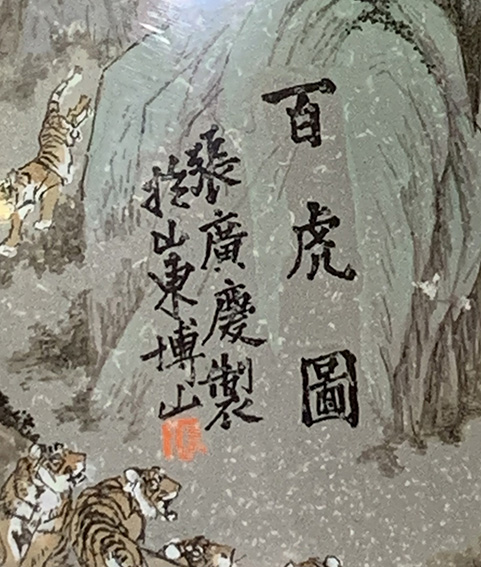 百虎圖
張廣慶製
於山東博山